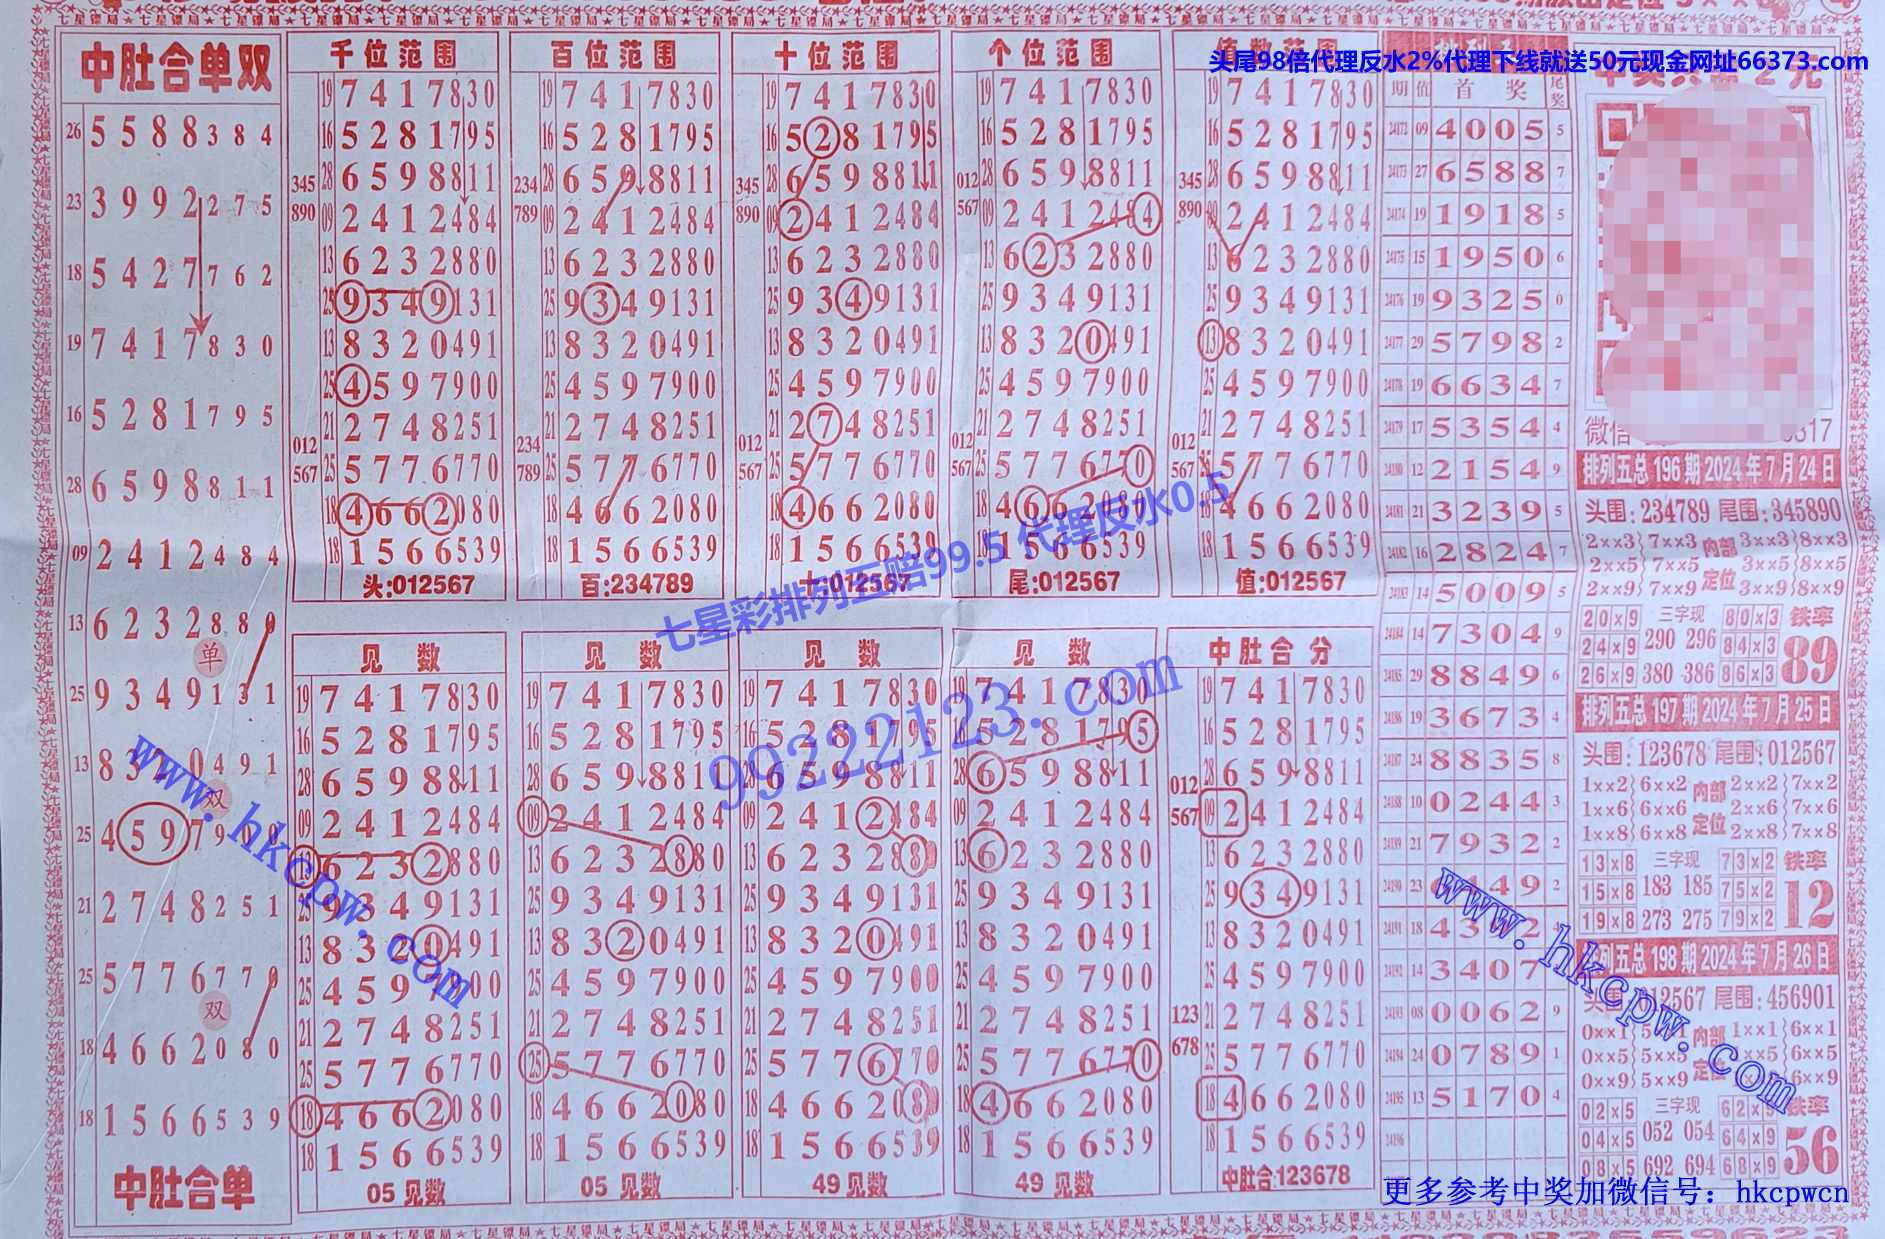 头尾98倍代理反水2%代理下线就送50元现金网址66373.com
中肚合单双
26 5588384
23 3992275
18 5427762
19 7417830
16 5281795
28 6598811
09 2412484
13 6232880
单
25 9349131
13 8320491
双
25 4597900
21 2748251
25 5776770
双
18 4662080
18 1566539
中肚合单
千位范围
19 7417830
16 5281795
28 6598811
345
890
09 2412484
13 6232880
25 9349131
13 8320491
25 4597900
21 2748251
012
567
25 5776770
18 4662080
18 1566539
头:012567
百位范围
19 7417830
16 5281795
28 6598811
234
789
09 2412484
13 6232880
25 9349131
13 8320491
25 4597900
21 2748251
234
789
25 5776770
18 4662080
18 1566539
百:234789
十位范围
19 7417830
16 5281795
28 6598811
345
890
09 2412484
13 6232880
25 9349131
13 8320491
25 4597900
21 2748251
012
567
25 5776770
18 4662080
18 1566539
十:012567
个位范围
19 7417830
16 5281795
28 6598811
012
567
09 2412484
13 6232880
25 9349131
13 8320491
25 4597900
21 2748251
012
567
25 5776770
18 4662080
18 1566539
尾:012567
值数范围
19 7417830
16 5281795
28 6598811
345
890
09 2412484
13 6232880
25 9349131
13 8320491
25 4597900
21 2748251
012
567
25 5776770
18 4662080
18 1566539
值:012567
见数
19 7417830
16 5281795
28 6598811
09 2412484
13 6232880
25 9349131
13 8320491
25 4597900
21 2748251
25 5776770
18 4662080
18 1566539
05见数
见数
19 7417830
16 5281795
28 6598811
09 2412484
13 6232880
25 9349131
13 8320491
25 4597900
21 2748251
25 5776770
18 4662080
18 1566539
05见数
见数
19 7417830
16 5281795
28 6598811
09 2412484
13 6232880
25 9349131
13 8320491
25 4597900
21 2748251
25 5776770
18 4662080
18 1566539
49见数
见数
19 7417830
16 5281795
28 6598811
09 2412484
13 6232880
25 9349131
13 8320491
25 4597900
21 2748251
25 5776770
18 4662080
18 1566539
49见数
中肚合分
19 7417830
16 5281795
28 6598811
012
567
09 2412484
13 6232880
25 9349131
13 8320491
25 4597900
123
678
21 2748251
25 5776770
18 4662080
18 1566539
中肚合:123678
期 值 首奖 尾奖
24172 09 4005 5
24173 27 6588 7
24174 19 1918 5
24175 15 1950 6
24176 19 9325 0
24177 29 5798 2
24178 19 6634 7
24179 17 5354 4
24180 12 2154 9
24181 21 3239 5
24182 16 2824 7
24183 14 5009 5
24184 14 7304 9
24185 29 8849 6
24186 19 3673 4
24187 24 8835 8
24188 10 0244 3
24189 21 7932 2
24190 23 149 2
24191 18 43 2
24192 14 3407
24193 08 0062 9
24194 24 0789 1
24195 13 5170 4
24196
微信
排列五总196期2024年7月24日
头围:234789 尾围:345890
2××3 7××3 内部 3××3 8××3
2××5 7××5 定位 3××5 8××5
2××9 7××9 3××9 8××9
20×9 三字现 80×3 铁率
24×9 290 296 84×3 89
26×9 380 386 86×3
排列五总197期2024年7月25日
头围:123678 尾围:012567
1××2 6××2 内部 2××2 7××2
1××6 6××6 定位 2××6 7××6
1××8 6××8 2××8 7××8
13×8 三字现 73×2 铁率
15×8 183 185 75×2 12
19×8 273 275 79×2
列五总198期2024年7月26日
头围:012567 尾围:456901
0××1 5××1 内部 1××1 6××1
0××5 5××5 定位 ××5 6××5
0××9 5××9 6××9
02×5 三字现 62×9 铁率
04×5 052 054 64×9 56
08×5 692 694 68×9
七星彩排列五赔99.5 代理反水0.5
99222123.com
www.hkcpw.com
www.hkcpw.com
更多参考中奖加微信号：hkcpwcn